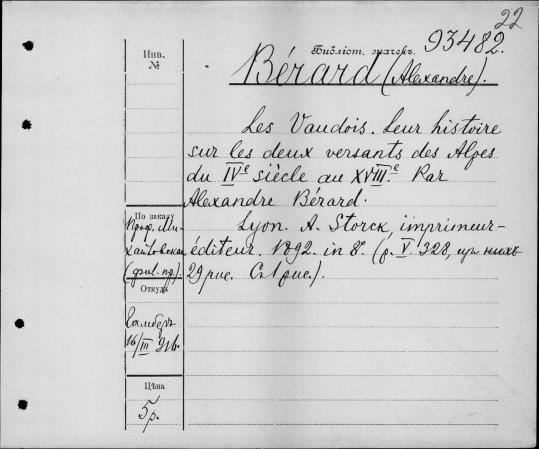 22
Библіот. значекъ. 93482.
Инв.
№
Bérard (Alexandre).
Les Vaudois. Leur histoire
sur les deux versants des Alpes
du IVe siècle au XVIIIe. Par
Alexandre Bérard.
Lyon. A. Storck, imprimeur-
éditeur. 1892. in 8º. (p. V. 328, изъ нихъ
29 рис. С
По заказу
Проф. Ми-
хайловскаго
(фил. пр.).
Откуда
16/III 916.
Цѣна
5р.